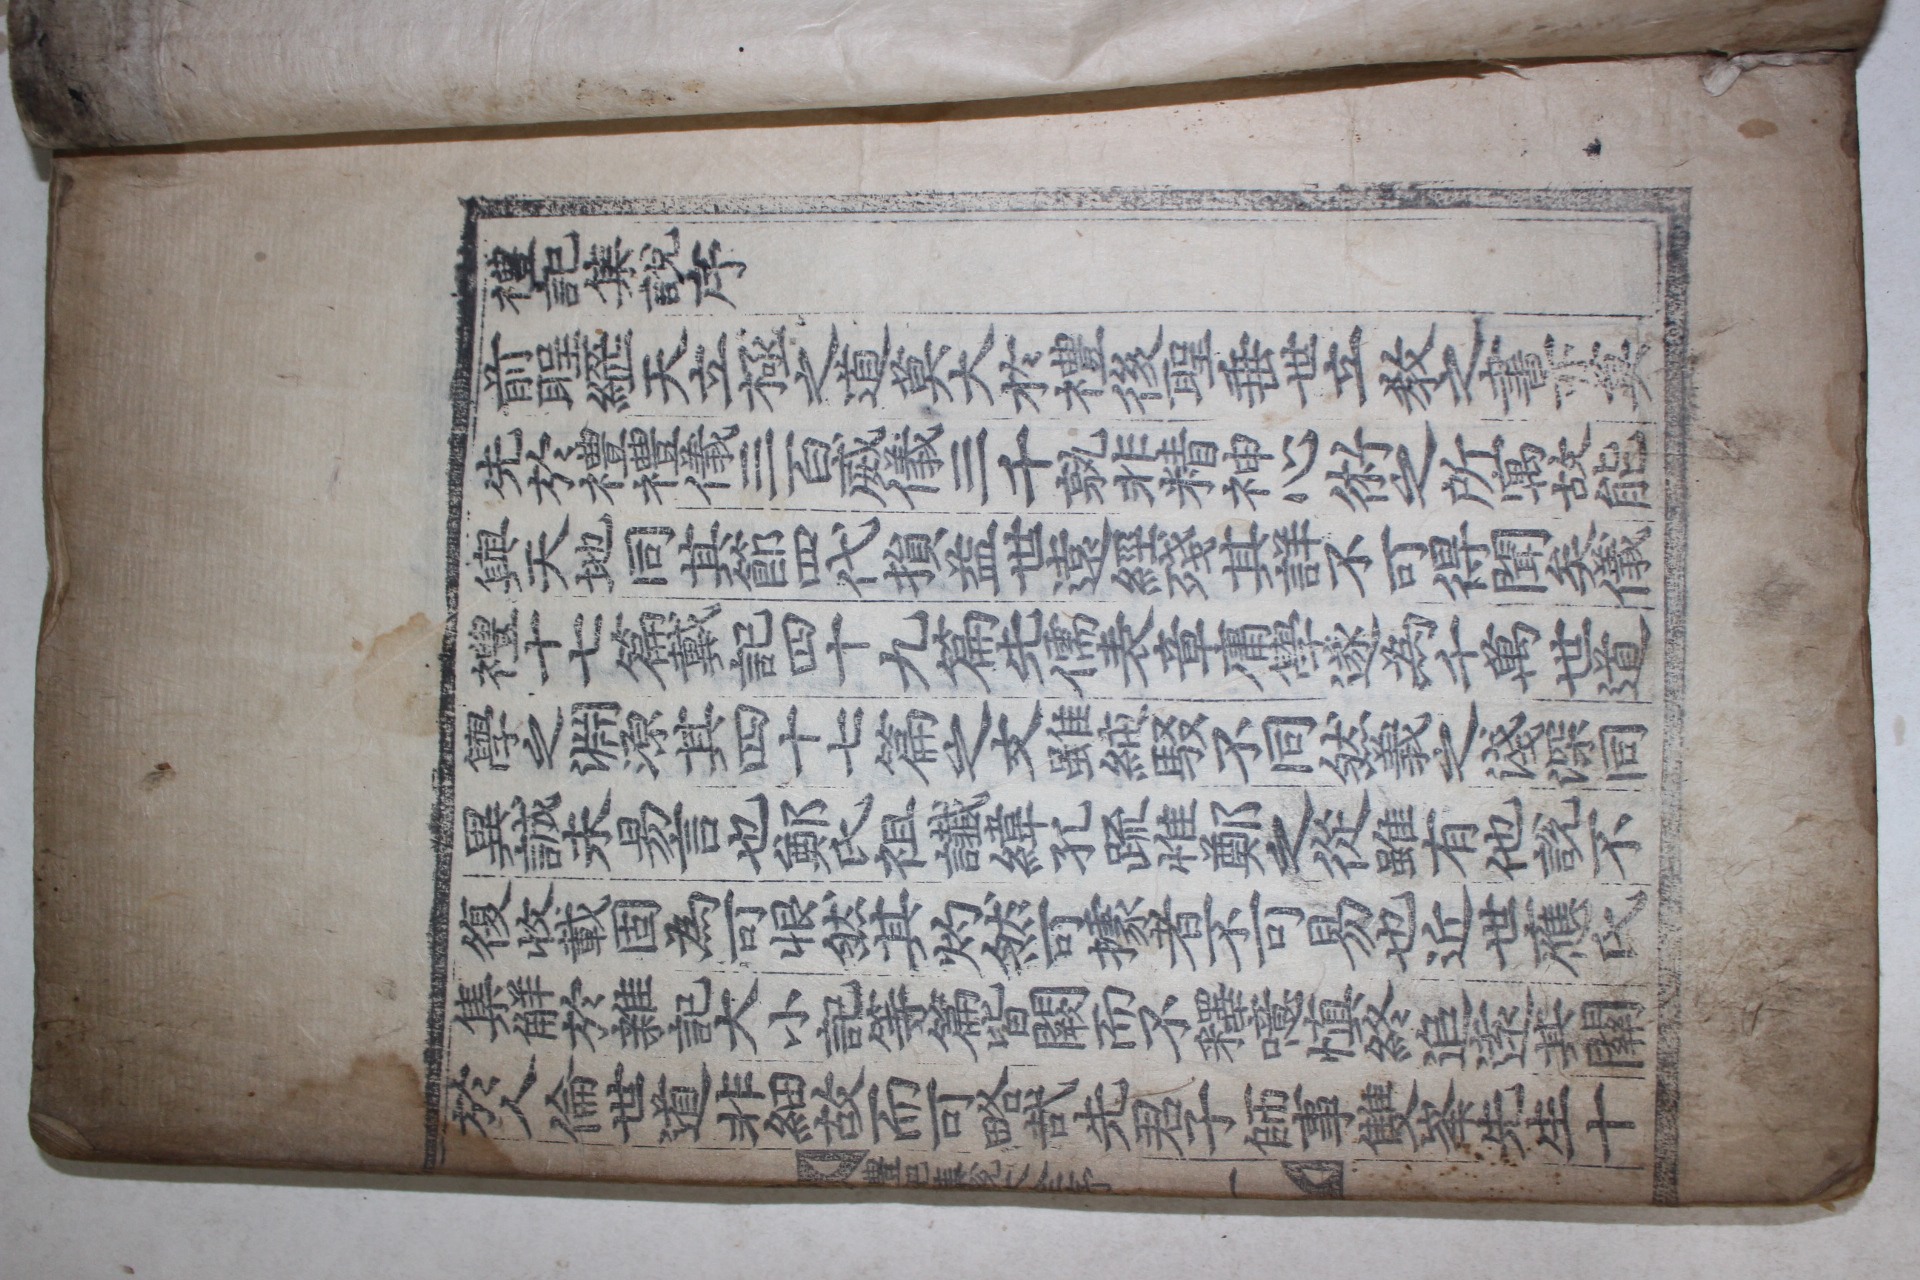 禮記集說序
前聖繼天立極之道莫大於禮後聖垂世立教之書亦莫
先於禮禮儀三百威儀三千孰非精神心術之所寓故能
與天地同其節四代損益世遠經殘其詳不可得聞矣儀
禮十七篇戴記四十九篇先儒表章庸學遂為千萬世道
學之淵源其四十七篇之文雖純駁不同然義之淺深同
異誠未易言也鄭氏祖讖緯孔疏惟鄭之從雖有他說不
復收載固為可恨然其灼然可據者不可易也近世應氏
集解於雜記大小記等篇皆闕而不釋噫慎終追遠其關
於人倫世道非細故而可略哉先君子師事雙峯先生十
禮記集說大全序 一